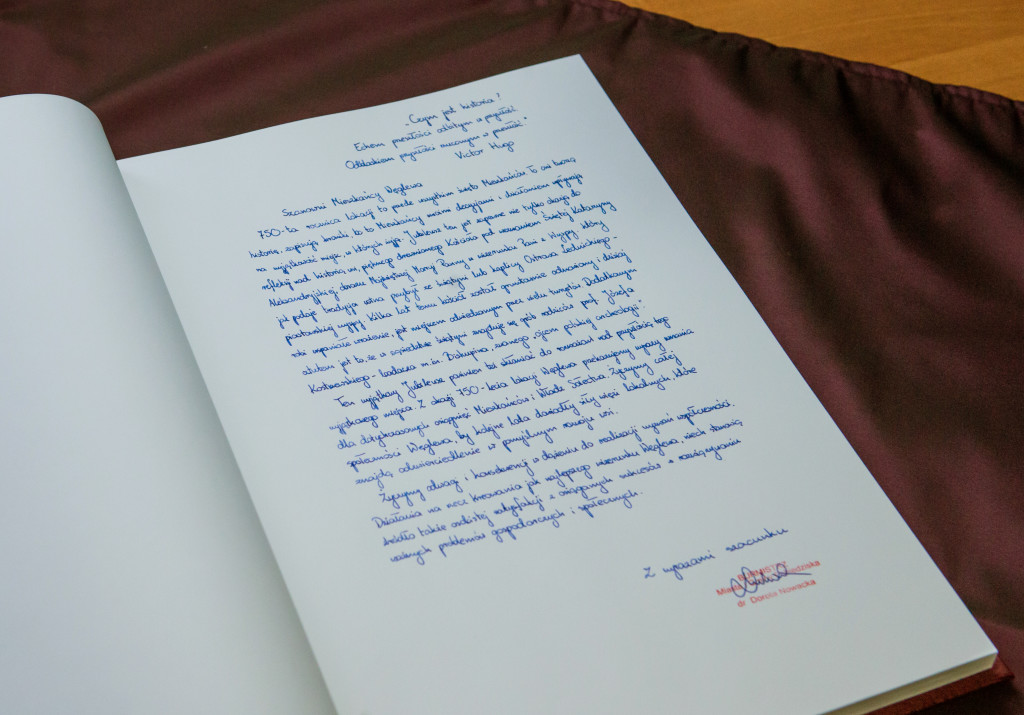 „Czym jest historia?
Echem przeszłości odbitym w przyszłości
Odblaskiem przyszłości rzuconym w przeszłość"
Victor Hugo
Szanowni Mieszkańcy Węglewa
750-ta rocznica lokacji to przede wszystkim święto Mieszkańców. To oni tworzą
historię, zapisują kroniki, to to Mieszkańcy swoimi decyzjami i działaniem wpływają
na wyjątkowość miejsc, w których żyją. Jubileusz ten jest zapewne nie tylko okazją do
refleksji nad historią wsi, pięknego drewnianego Kościoła pod wezwaniem Świętej Katarzyny
Aleksandryjskiej, obrazu Najświętszej Maryi Panny w wizerunku Pani z Wyspy, który
jak podaje tradycja ustna przybył ze świątyni lub kaplicy Ostrowa Lednickiego -
piastowskiej wyspy. Kilka lat temu kościół został gruntownie odnowiony i dzisiaj
robi wspaniałe wrażenie, jest miejscem odwiedzanym przez wielu turystów. Dodatkowym
atutem jest to, że w sąsiedztwie świątyni znajduje się grób rodziców prof. Józefa
Kostrzewskiego - badacza m.in. Biskupina, zwanego „ojcem polskiej archeologii".
Ten wyjątkowy Jubileusz powinien też skłaniać do rozważań nad przyszłością tego
wyjątkowego miejsca. Z okazji 750-lecia lokacji Węglewa przekazujemy wyrazy uznania
dla dotychczasowych osiągnięć Mieszkańców i Władz Sołectwa. Życzymy całej
społeczności Węglewa, by kolejne lata dawały siły więzi lokalnych, które
znajdą odzwierciedlenie w pomyślnym rozwoju wsi.
Życzymy odwagi i konsekwencji w dążeniu do realizacji wyzwań współczesności.
Działania na rzecz kreowania jak najlepszego wizerunku Węglewa, niech stanowią
źródło także osobistej satysfakcji z osiąganych sukcesów w rozwiązywaniu
ważnych problemów gospodarczych i społecznych.
Z wyrazami szacunku
BURMISTRZ
Miasta
dr Dorota Nowacka